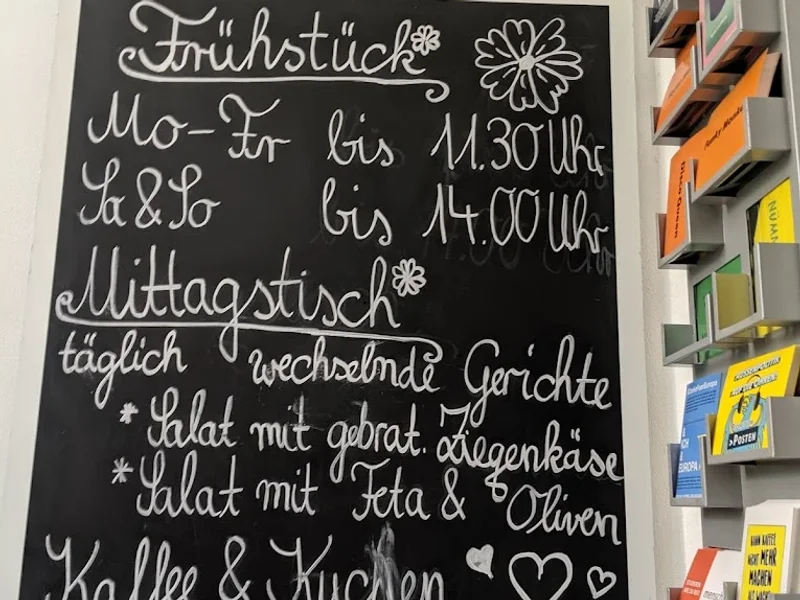 Frühstück
Mo-Fr bis 11.30 Uhr
Sa & So bis 14.00 Uhr
Mittagstisch
täglich wechselnde Gerichte
* Salat mit gebrat. Ziegenkäse
* Salat mit Feta & Oliven
Kaffee & Kuchen
Funky Monks
Disco Queen
NUMM
EUROPA
>POSTEN
KANN KAFFEE
NICHT MEHR
MACHEN